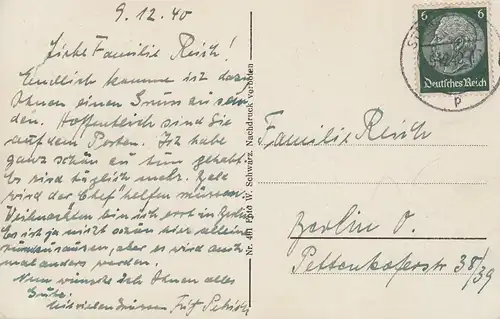 9.12.40
Liebe Familie Reich!
Endlich komme ich dazu
Ihnen einen Gruss zu sen
den. Hoffentlich sind Sie
auf dem Posten. Ich habe
ganz schön zu tun gehabt
Es sind täglich mehr.
wird der Chef helfen müssen.
Weihnachten bin ich erst in
Es ist ja nicht schön hier allein
aber es wird auch
mal anders werden.
Nun wünsche ich Ihnen alles
Gute.
Mit vielen Grüssen Fritz
Nr. 401 Foto W. Schwarz. Nachdruck verboten
6 6
Deutsches Reich
p
Familie Reich
Berlin O.
Pettenkoferstr 38/39